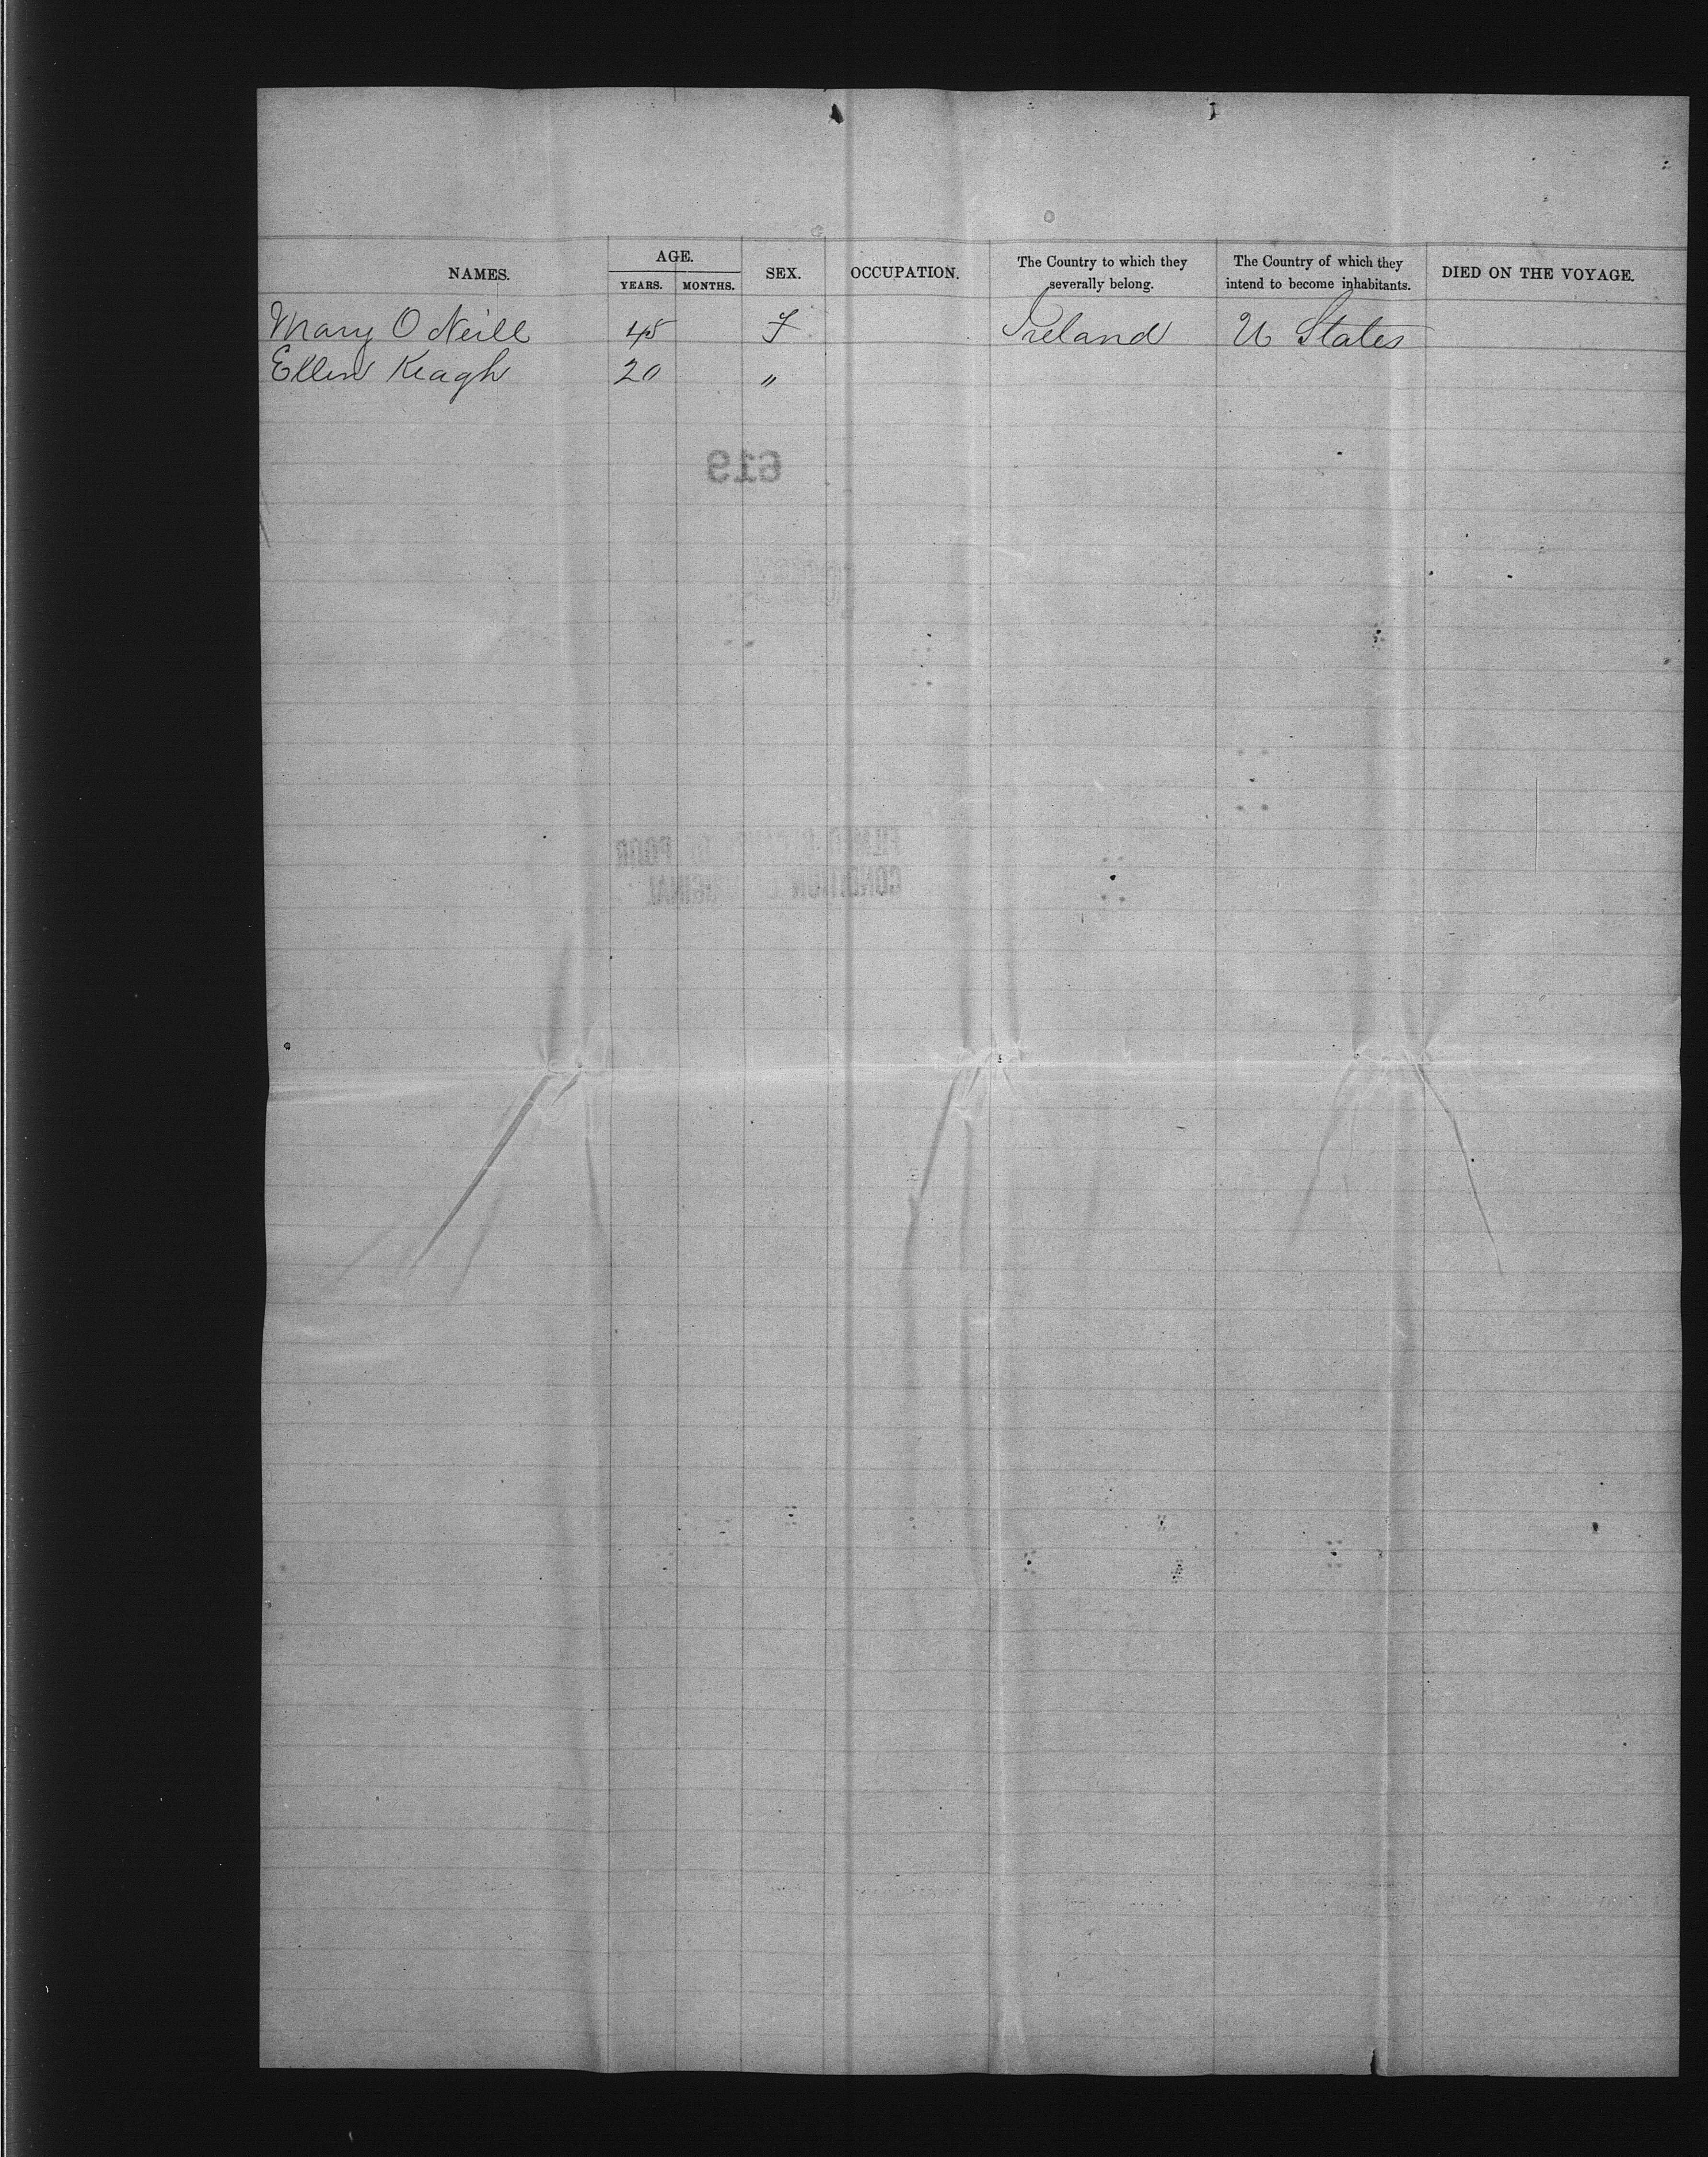 NAMES. AGE. SEX. OCCUPATION. The Country to which they severally belong. The Country of which they intend to become inhabitants. DIED ON THE VOYAGE.
YEARS. MONTHS.
Mary O Neill 45 F Ireland U States
Ellen Keagh 20 "
619
FILMED BECAUSE OF POOR
CONDITION OF ORIGINAL